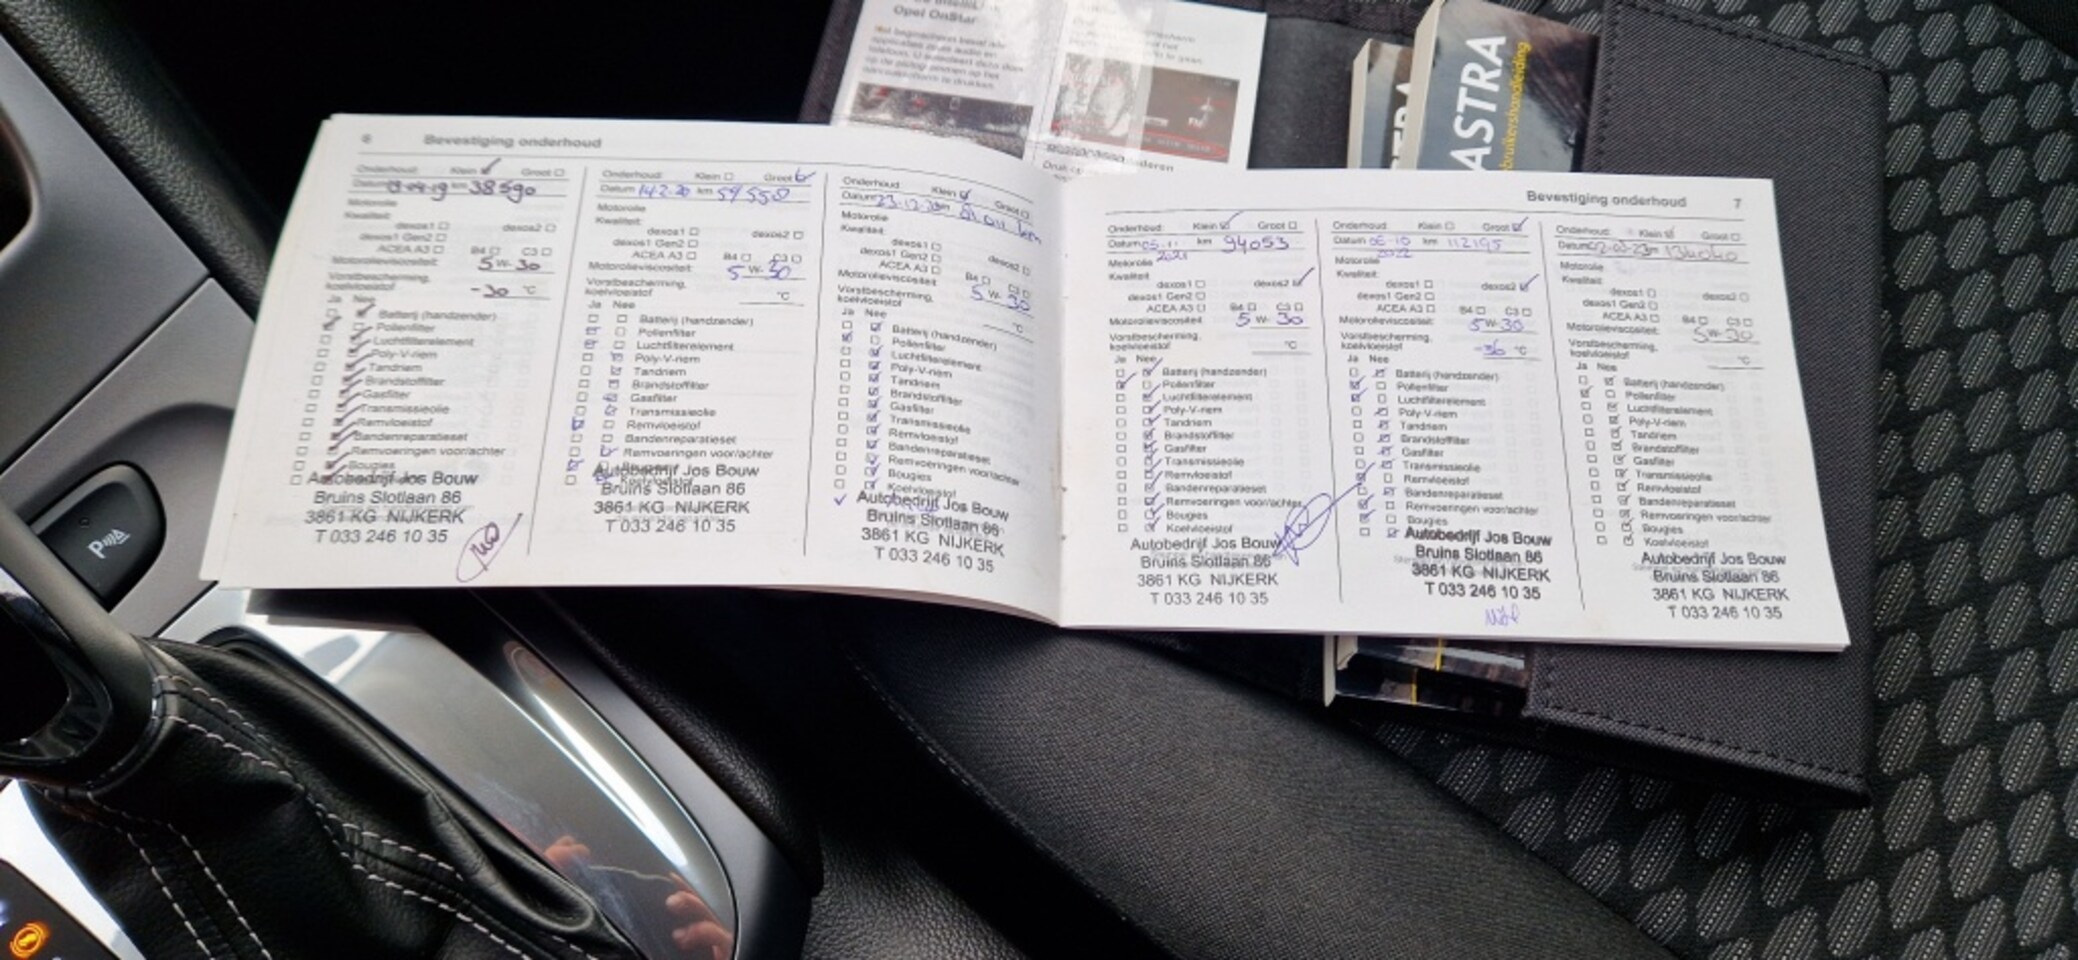 Opel OnStar
ASTRA
6 Bevestiging onderhoud
Onderhoud: Klein Groot
Datum km 38590
Motorolie
Kwaliteit:
dexos1 dexos2
dexos1 Gen2
ACEA A3 B4 C3
Motorolieviscositeit: 5 W- 30
Vorstbescherming,
koelvloeistof -30 °C
Ja Nee
Batterij (handzender)
Pollenfilter
Luchtfilterelement
Poly-V-riem
Tandriem
Brandstoffilter
Gasfilter
Transmissieolie
Remvloeistof
Bandenreparatieset
Remvoeringen voor/achter
Bougies
Autobedrijf Jos Bouw
Bruins Slotlaan 86
3861 KG NIJKERK
T 033 246 10 35
Onderhoud: Klein Groot
Datum 14-2-20 km 59558
Motorolie
Kwaliteit:
dexos1 dexos2
dexos1 Gen2
ACEA A3 B4 C3
Motorolieviscositeit: 5 W- 30
Vorstbescherming,
koelvloeistof °C
Ja Nee
Batterij (handzender)
Pollenfilter
Luchtfilterelement
Poly-V-riem
Tandriem
Brandstoffilter
Gasfilter
Transmissieolie
Remvloeistof
Bandenreparatieset
Remvoeringen voor/achter
Autobedrijf Jos Bouw
Bruins Slotlaan 86
3861 KG NIJKERK
T 033 246 10 35
Onderhoud: Klein Groot
Datum 23-12-20 km
Motorolie
Kwaliteit:
dexos1 dexos2
dexos1 Gen2
ACEA A3 B4 C3
Motorolieviscositeit: 5 W- 30
Vorstbescherming,
koelvloeistof °C
Ja Nee
Batterij (handzender)
Pollenfilter
Luchtfilterelement
Poly-V-riem
Tandriem
Brandstoffilter
Gasfilter
Transmissieolie
Remvloeistof
Bandenreparatieset
Remvoeringen voor/achter
Bougies
Koelvloeistof
Autobedrijf Jos Bouw
Bruins Slotlaan 86
3861 KG NIJKERK
T 033 246 10 35
Bevestiging onderhoud 7
Onderhoud: Klein Groot
Datum 05-11 km 94053
2021
Motorolie
Kwaliteit:
dexos1 dexos2
dexos1 Gen2
ACEA A3 B4 C3
Motorolieviscositeit: 5 W- 30
Vorstbescherming,
koelvloeistof °C
Ja Nee
Batterij (handzender)
Pollenfilter
Luchtfilterelement
Poly-V-riem
Tandriem
Brandstoffilter
Gasfilter
Transmissieolie
Remvloeistof
Bandenreparatieset
Remvoeringen voor/achter
Bougies
Koelvloeistof
Autobedrijf Jos Bouw
Bruins Slotlaan 86
3861 KG NIJKERK
T 033 246 10 35
Onderhoud: Klein Groot
Datum 06-10 km 112195
2022
Motorolie
Kwaliteit:
dexos1 dexos2
dexos1 Gen2
ACEA A3 B4 C3
Motorolieviscositeit: 5 W- 30
Vorstbescherming,
koelvloeistof -36 °C
Ja Nee
Batterij (handzender)
Pollenfilter
Luchtfilterelement
Poly-V-riem
Tandriem
Brandstoffilter
Gasfilter
Transmissieolie
Remvloeistof
Bandenreparatieset
Remvoeringen voor/achter
Bougies
Autobedrijf Jos Bouw
Bruins Slotlaan 86
3861 KG NIJKERK
T 033 246 10 35
Onderhoud: Klein Groot
Datum km 134040
Motorolie
Kwaliteit:
dexos1 dexos2
dexos1 Gen2
ACEA A3 B4 C3
Motorolieviscositeit: 5 W- 30
Vorstbescherming,
koelvloeistof °C
Ja Nee
Batterij (handzender)
Pollenfilter
Luchtfilterelement
Poly-V-riem
Tandriem
Brandstoffilter
Gasfilter
Transmissieolie
Remvloeistof
Bandenreparatieset
Remvoeringen voor/achter
Bougies
Koelvloeistof
Autobedrijf Jos Bouw
Bruins Slotlaan 86
3861 KG NIJKERK
T 033 246 10 35